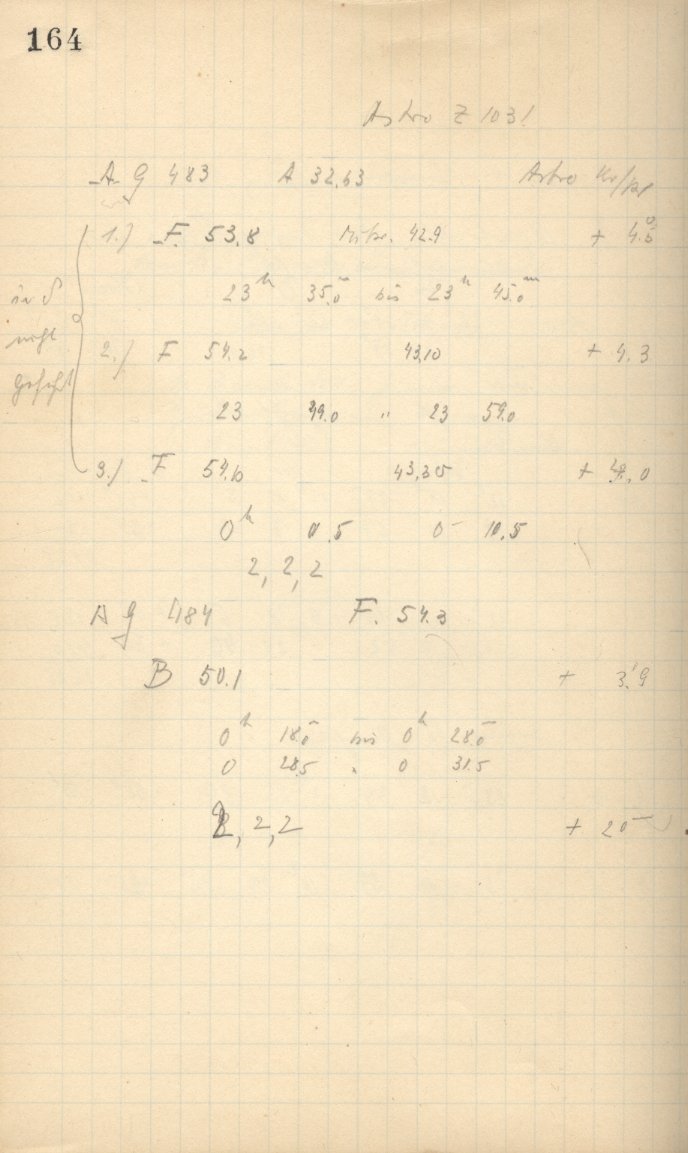 164
Astro Z 103!
A G 483 A 32.63 Astro
1.) F. 53.8 42.9 + 4.8
23h 35.0m bis 23h 45.0m
in δ
nicht
2.) F 54.2 43,10 + 4.3
23 49.0 " 23 59.0
3.) F 54.6 43,35 + 4.0
0h 0.5 0 10.5
2, 2, 2
A G 484 F. 54.3
B 50.1 + 3.9
0h 18.0 bis 0h 28.0
0 28.5 " 0 31.5
2, 2, 2 + 20